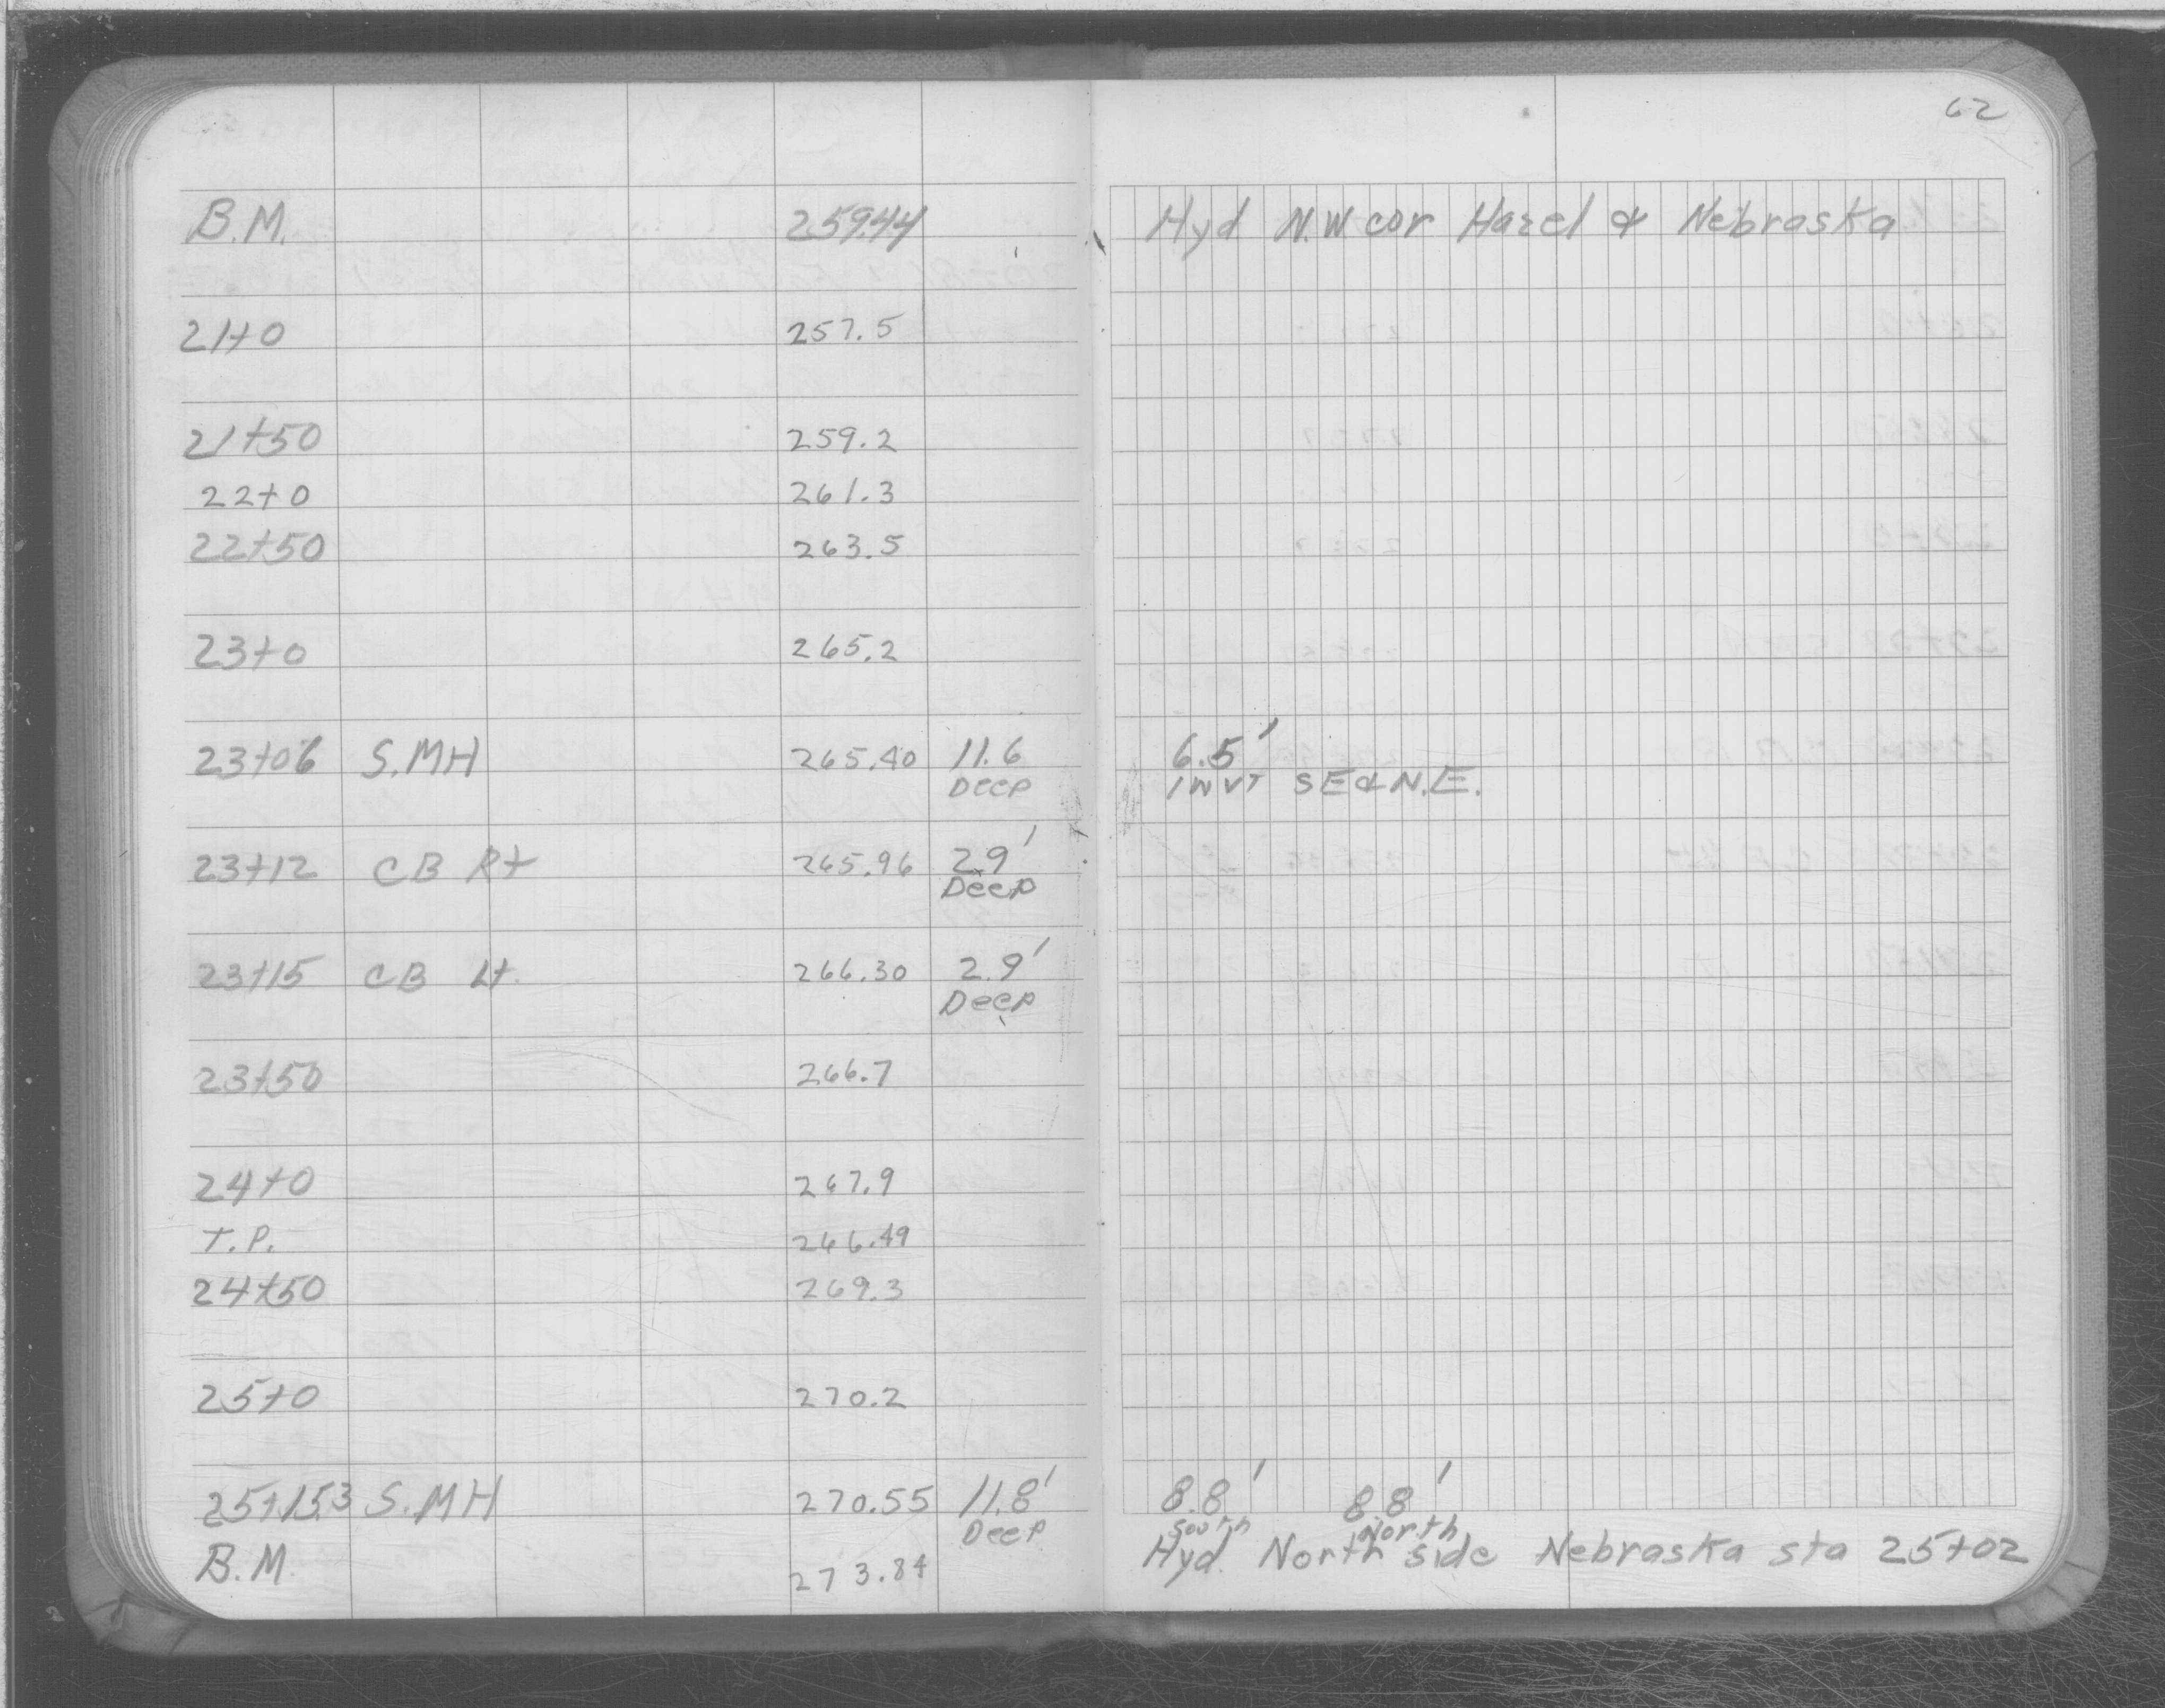 62
B.M. 259.44 Hyd N.W. cor Hazel & Nebraska
21+0 257.5
21+50 259.2
22+0 261.3
22+50 263.5
23+0 265.2
23+06 S.MH 265.40 11.6 6.5'
Deep INVT SE & N.E.
23+12 CB Rt 265.96 2.9'
Deep
23+15 CB Lt. 266.30 2.9'
Deep
23+50 266.7
24+0 267.9
T.P. 266.49
24+50 269.3
25+0 270.2
25+15.3 S.MH 270.55 11.8' 8.8' 8.8'
Deep South North
B.M. 273.84 Hyd. North side Nebraska sta 25+02